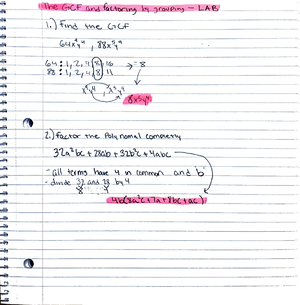 The GCF and factoring by grouping - LAB
1.) Find the GCF
64x⁴y⁴, 88x⁵y⁴
64: 1, 2, 4, 8, 16 → 8
88: 1, 2, 4, 8, 11
8x⁴y⁴
2.) Factor the Polynomial completely
32a²bc + 28ab + 32b²c + 4abc
- all terms have 4 in common and b
- divide 32 and 28 by 4
8 7
4b(8a²c + 7a + 8bc + ac)